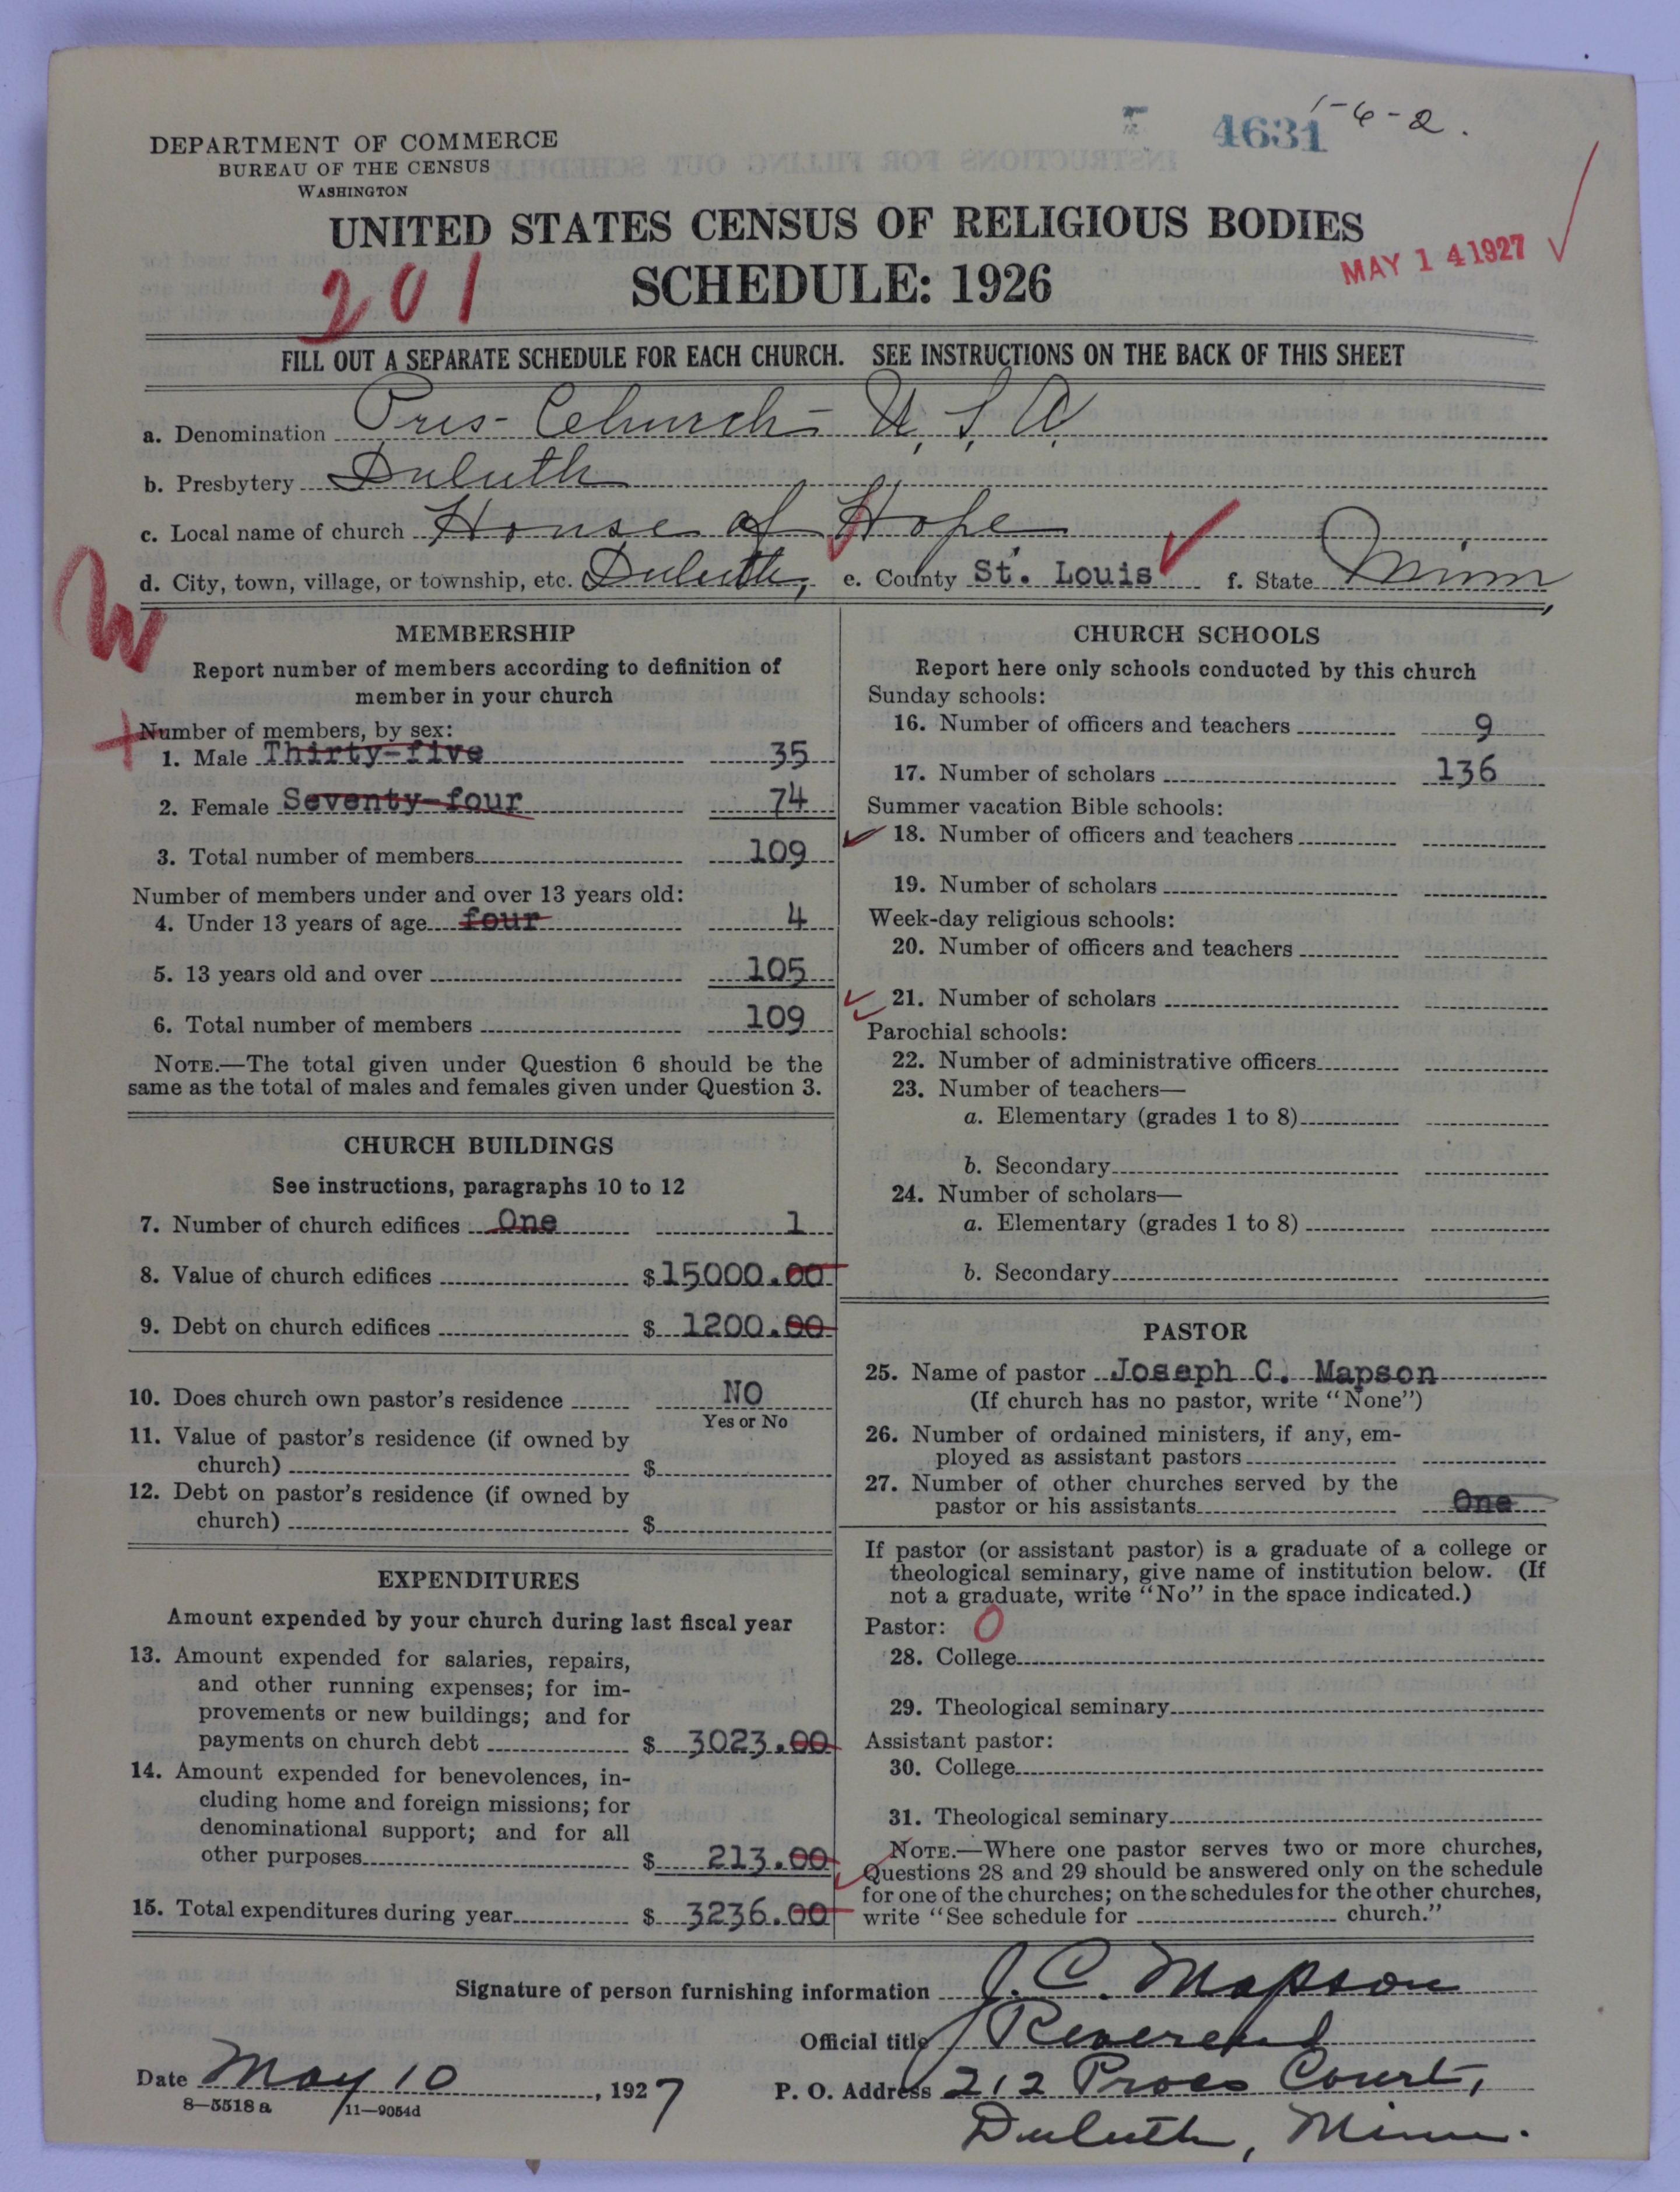 4631
1-6-2.
DEPARTMENT OF COMMERCE
BUREAU OF THE CENSUS
WASHINGTON
UNITED STATES CENSUS OF RELIGIOUS BODIES
SCHEDULE: 1926
201
MAY 14 1927
FILL OUT A SEPARATE SCHEDULE FOR EACH CHURCH. SEE INSTRUCTIONS ON THE BACK OF THIS SHEET
a. Denomination Pres- Church- U.S.A.
b. Presbytery Duluth
c. Local name of church House of Hope
d. City, town, village, or township, etc. Duluth, e. County St. Louis f. State Minn,
MEMBERSHIP
Report number of members according to definition of
member in your church
Number of members, by sex:
1. Male Thirty-five 35
2. Female Seventy-four 74
3. Total number of members 109
Number of members under and over 13 years old:
4. Under 13 years of age four 4
5. 13 years old and over 105
6. Total number of members 109
NOTE.—The total given under Question 6 should be the
same as the total of males and females given under Question 3.
CHURCH BUILDINGS
See instructions, paragraphs 10 to 12
7. Number of church edifices One 1
8. Value of church edifices $15000.00
9. Debt on church edifices $ 1200.00
10. Does church own pastor's residence NO
Yes or No
11. Value of pastor's residence (if owned by
church) $
12. Debt on pastor's residence (if owned by
church) $
EXPENDITURES
Amount expended by your church during last fiscal year
13. Amount expended for salaries, repairs,
and other running expenses; for im-
provements or new buildings; and for
payments on church debt $ 3023.00
14. Amount expended for benevolences, in-
cluding home and foreign missions; for
denominational support; and for all
other purposes $ 213.00
15. Total expenditures during year $ 3236.00
CHURCH SCHOOLS
Report here only schools conducted by this church
Sunday schools:
16. Number of officers and teachers 9
17. Number of scholars 136
Summer vacation Bible schools:
18. Number of officers and teachers
19. Number of scholars
Week-day religious schools:
20. Number of officers and teachers
21. Number of scholars
Parochial schools:
22. Number of administrative officers
23. Number of teachers—
a. Elementary (grades 1 to 8)
b. Secondary
24. Number of scholars—
a. Elementary (grades 1 to 8)
b. Secondary
PASTOR
25. Name of pastor Joseph C. Mapson
(If church has no pastor, write "None")
26. Number of ordained ministers, if any, em-
ployed as assistant pastors
27. Number of other churches served by the
pastor or his assistants One
If pastor (or assistant pastor) is a graduate of a college or
theological seminary, give name of institution below. (If
not a graduate, write "No" in the space indicated.)
Pastor: 0
28. College
29. Theological seminary
Assistant pastor:
30. College
31. Theological seminary
NOTE.—Where one pastor serves two or more churches,
Questions 28 and 29 should be answered only on the schedule
for one of the churches; on the schedules for the other churches,
write "See schedule for church."
Signature of person furnishing information J. C. Mapson
Official title Reverend
Date May 10, 1927 P. O. Address 212 Court,
8-5518a 11-9054d
Duluth, Minn.